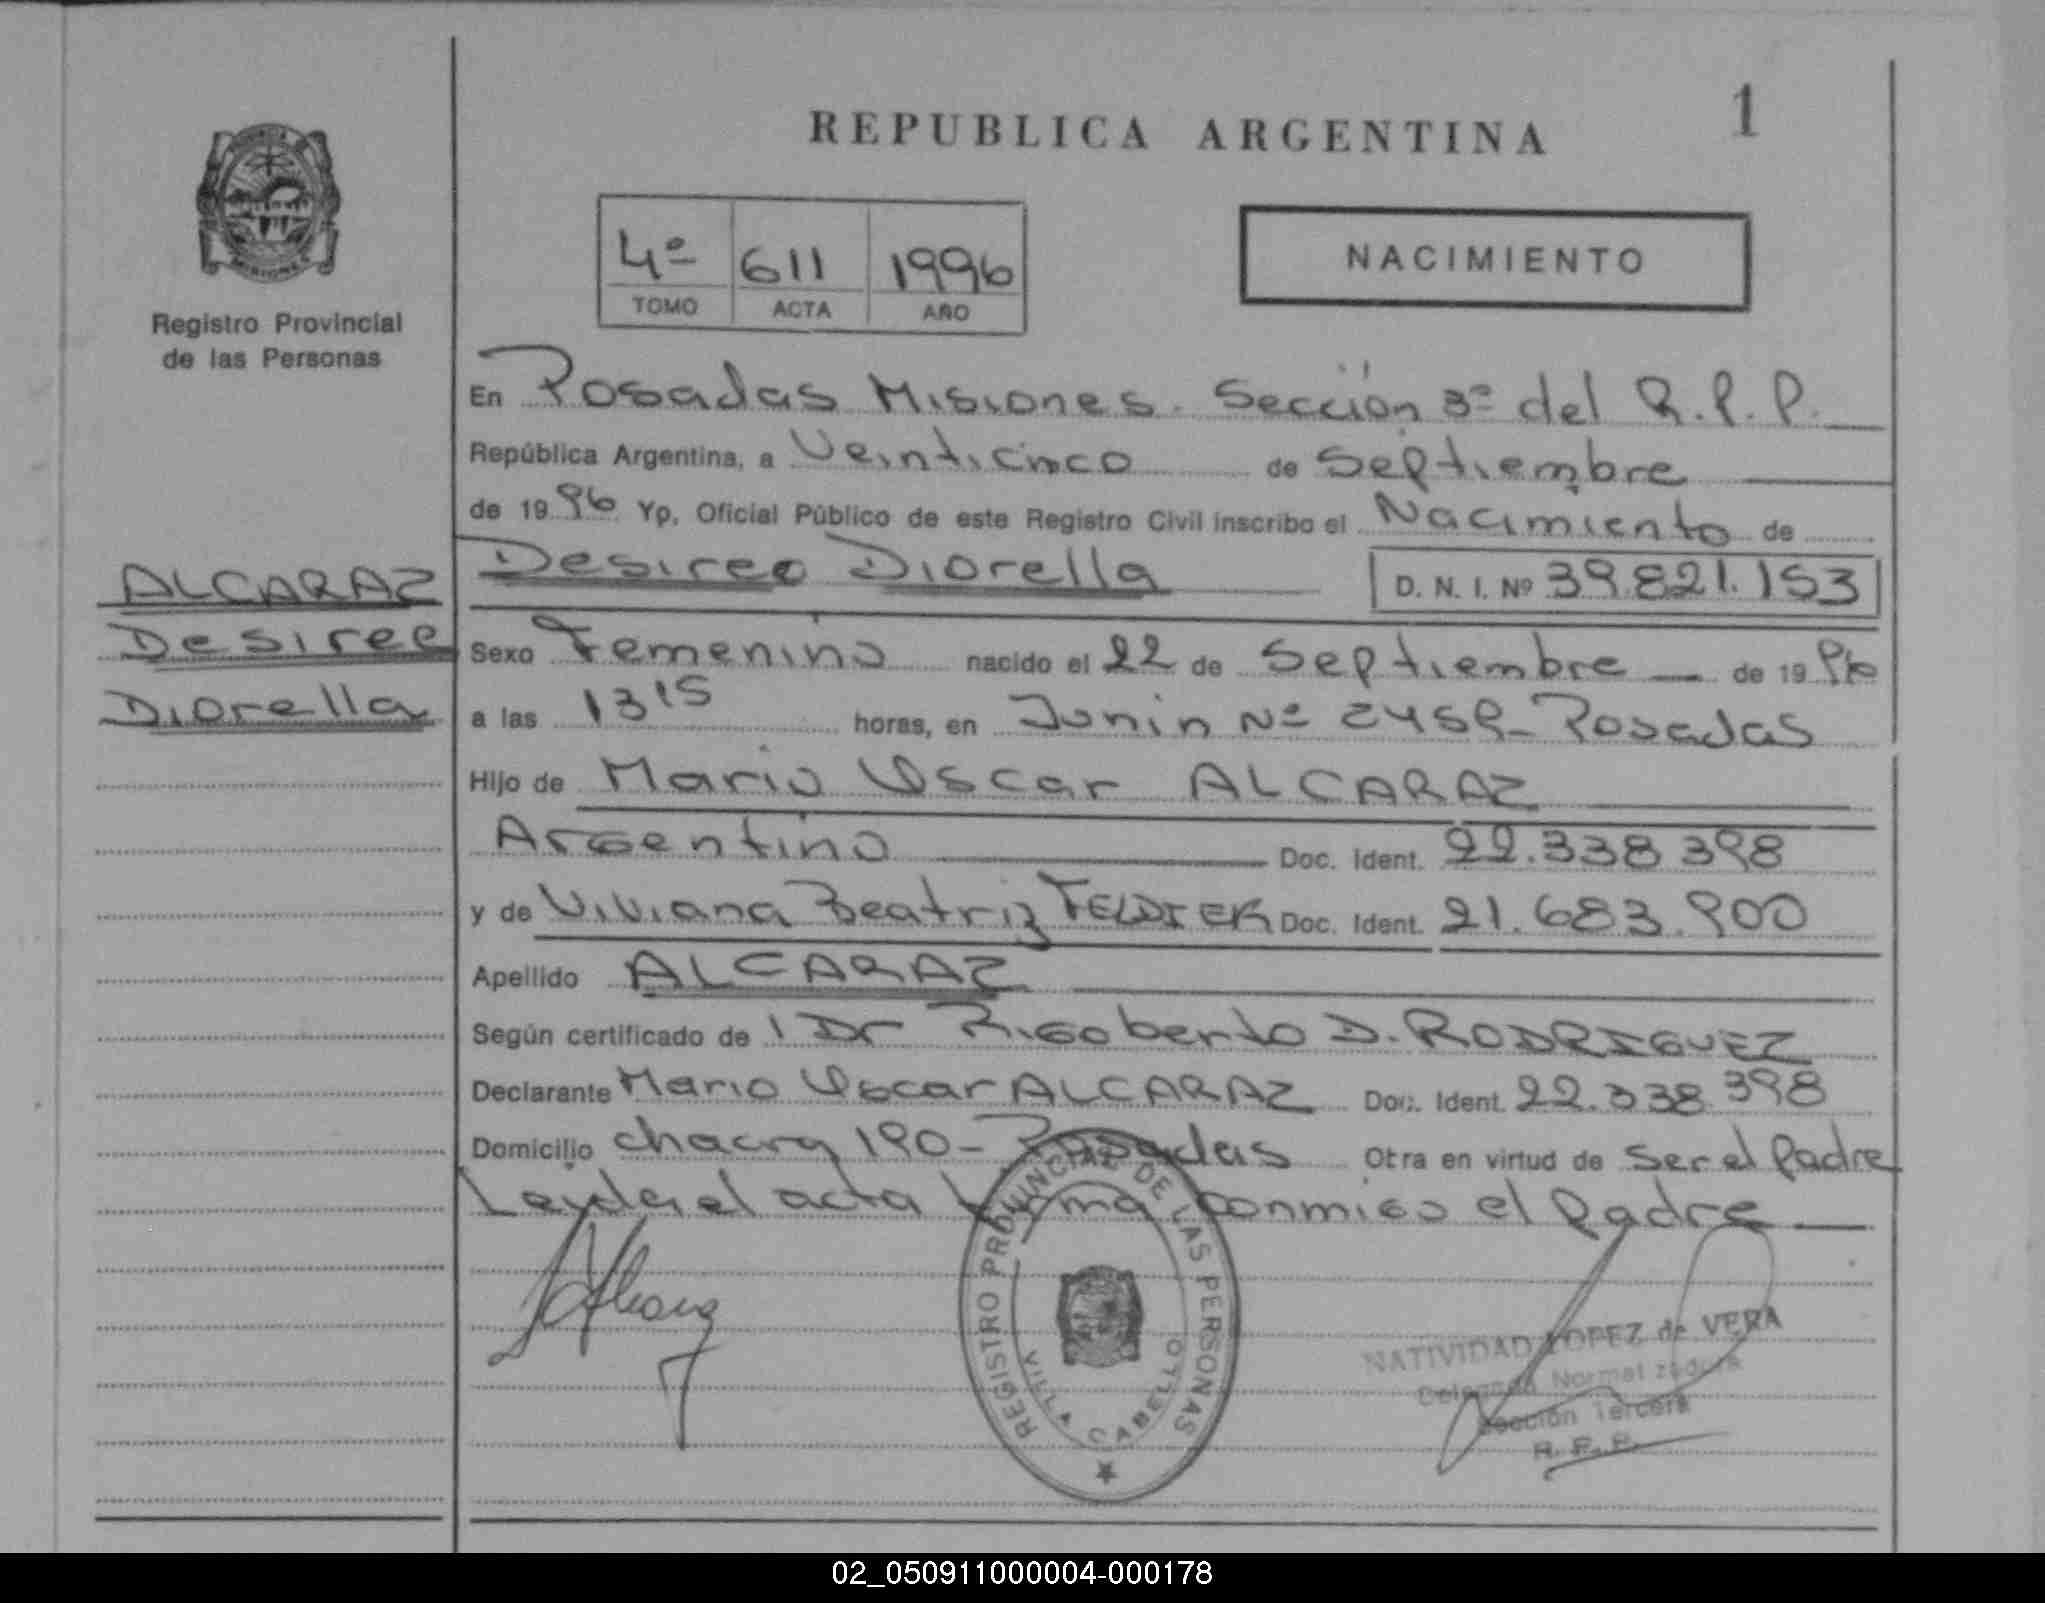 REPUBLICA ARGENTINA
1
Registro Provincial
de las Personas
MISIONES
4º 611 1996
TOMO ACTA AÑO
NACIMIENTO
En Posadas Misiones. Sección 3º del R.P.P.
República Argentina, a Veinticinco de Septiembre
de 1996 Yo, Oficial Público de este Registro Civil inscribo el Nacimiento de
Desiree Diorella D. N. I. Nº 39.821.153
ALCARAZ
Desiree
Diorella
Sexo Femenino nacido el 22 de Septiembre de 1996
a las 13 15 horas, en Junin Nº 2459 - Posadas
Hijo de Mario Oscar ALCARAZ
Argentino Doc. Ident. 22.338 398
y de Viviana Beatriz Doc. Ident. 21.683.900
Apellido ALCARAZ
Según certificado de l Dr Rigoberto D. RODRIGUEZ
Declarante Mario Oscar ALCARAZ Doc. Ident. 22.338.398
Domicilio chacra 190 - Posadas Otra en virtud de ser el Padre
Leyda el acta firma conmigo el Padre
REGISTRO PROVINCIAL DE LAS PERSONAS
VILLA CABELLO
NATIVIDAD LOPEZ de VERA
Sección Tercera
R. P. P.
02_050911000004-000178